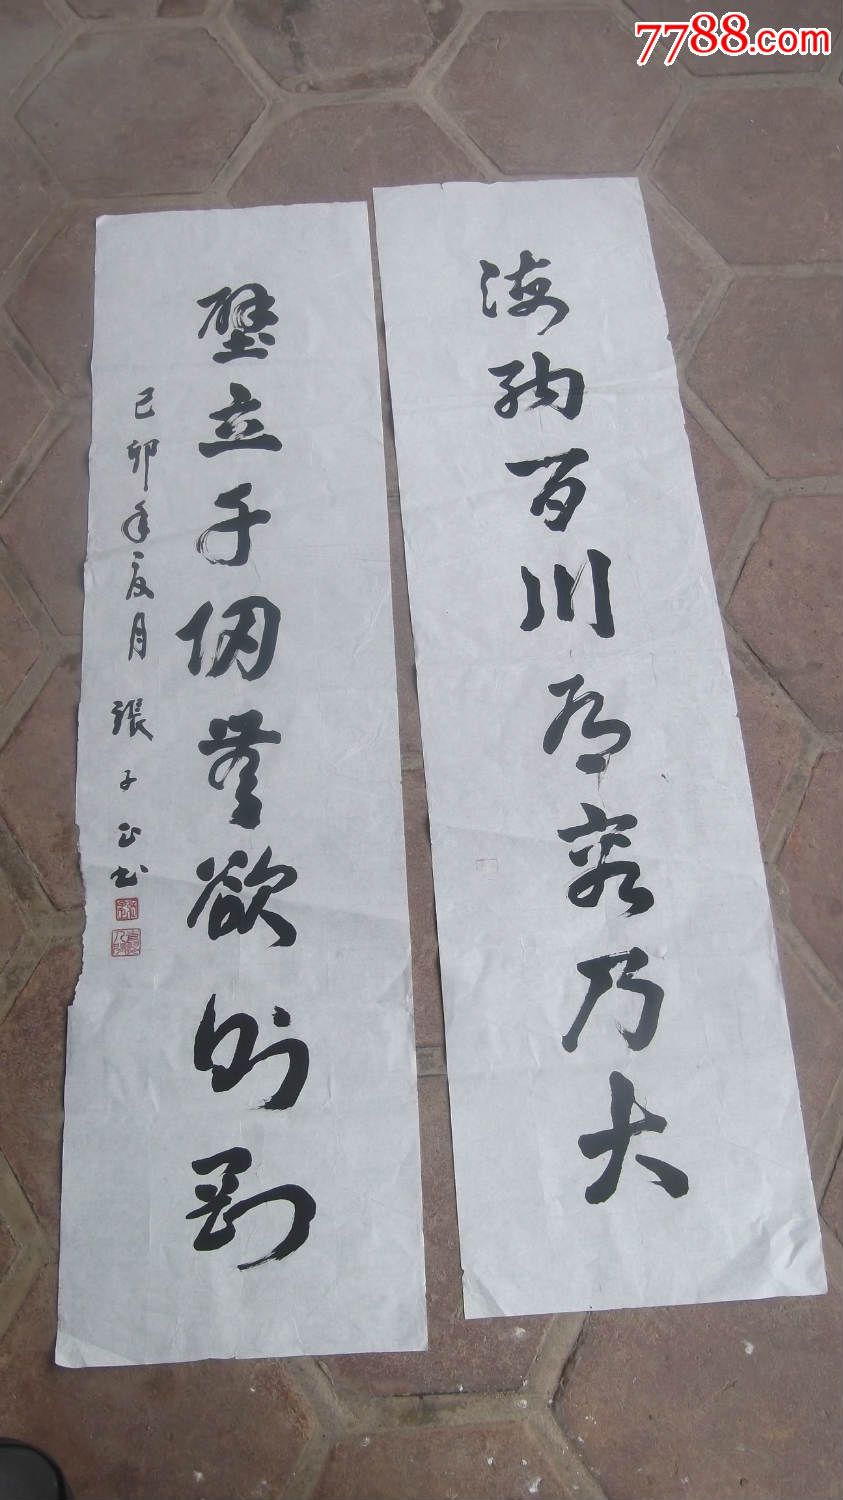 7788.com
海納百川有容乃大
壁立千仞無欲則剛
己卯年夏月 張子正书